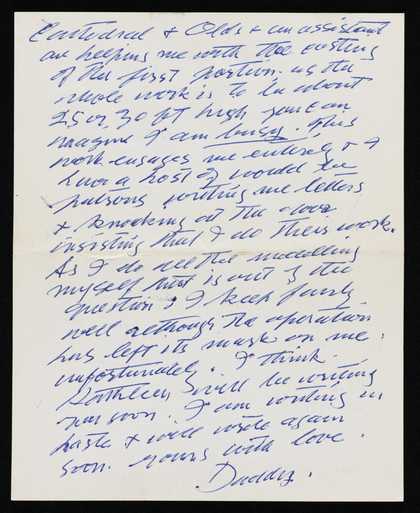 Cathedral & Olds & an assistant
are helping me with the casting
of the first portion. as the
whole work is to be about
25 or 30 ft high you can
imagine I am busy. This
work engages me entirely & I
have a host of would be
patrons writing me letters
& knocking at the door
insisting that I do their work.
As I do all the modelling
myself that is out of the
question. I keep fairly
well although the operation
has left its mark on me.
unfortunately. I think
Kathleen will be writing
you soon. I am writing in
haste & will write again
soon. yours with love.
Daddy.